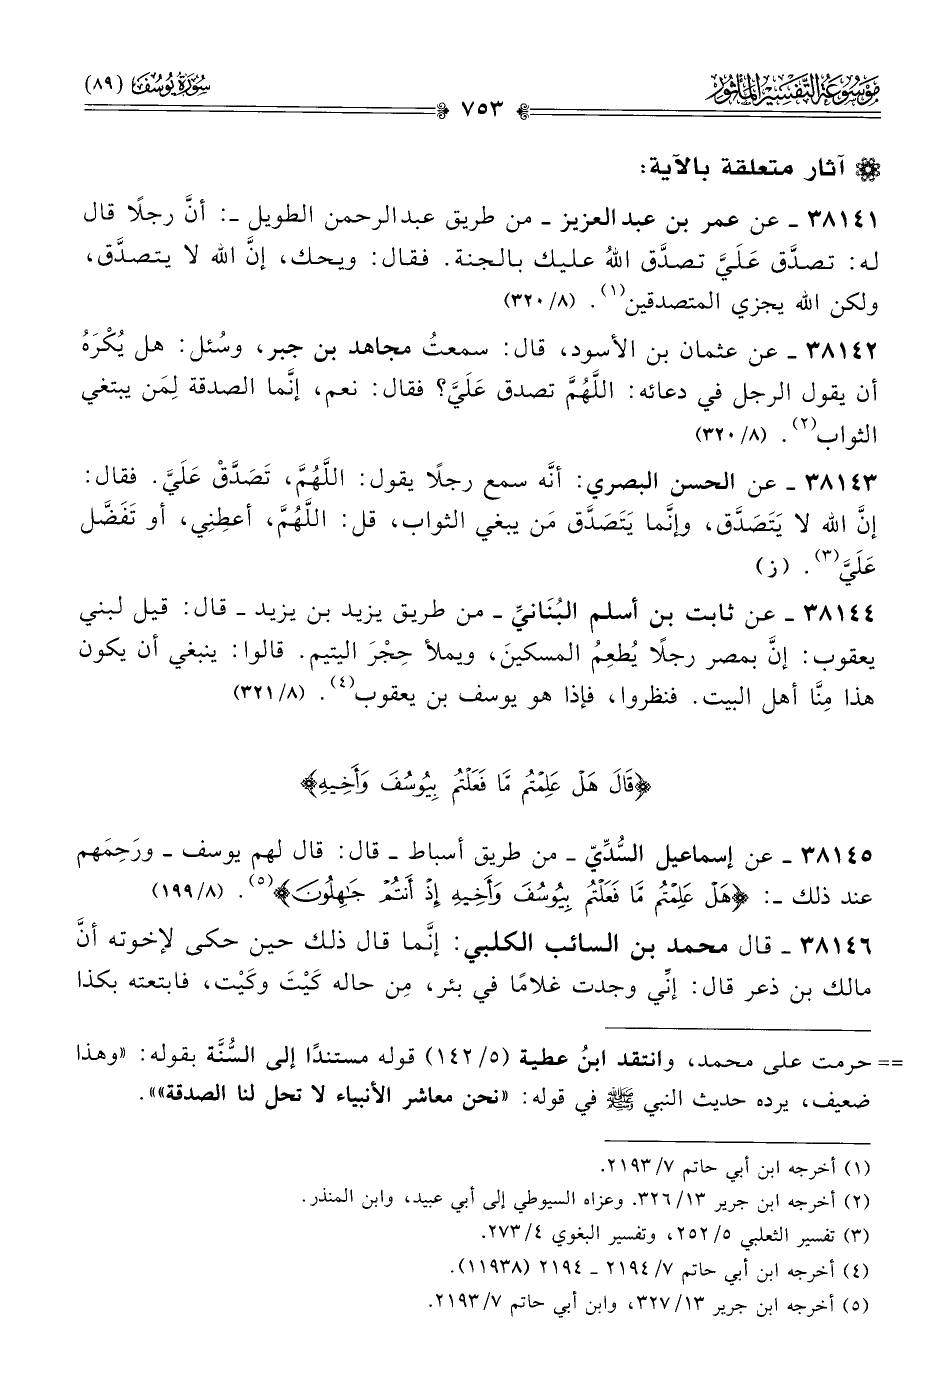 مَوْسُوعَة التَّفْسِيْر المَأْثُور
٧٥٣
سُورَةُ يُوسُفَ (٨٩)
آثار متعلقة بالآية:
٣٨١٤١ ـ عن عمر بن عبد العزيز ـ من طريق عبد الرحمن الطويل ـ: أنَّ رجلًا قال
له: تصدَّق عَلَيَّ تصدَّق اللهُ عليك بالجنة. فقال: ويحك، إنَّ الله لا يتصدَّق،
ولكن الله يجزي المتصدقين(١). (٣٢٠/٨)
٣٨١٤٢ ـ عن عثمان بن الأسود، قال: سمعتُ مجاهد بن جبر، وسُئل: هل يُكْرَهُ
أن يقول الرجل في دعائه: اللَّهُمَّ تصدق عَلَيَّ؟ فقال: نعم، إنَّما الصدقة لِمَن يبتغي
الثواب(٢). (٣٢٠/٨)
٣٨١٤٣ ـ عن الحسن البصري: أنَّه سمع رجلًا يقول: اللَّهُمَّ، تَصَدَّقْ عَلَيَّ. فقال:
إنَّ الله لا يَتَصَدَّق، وإنَّما يَتَصَدَّق مَن يبغي الثواب، قل: اللَّهُمَّ، أعطِنِي، أو تَفَضَّل
عَلَيَّ(٣). (ز)
٣٨١٤٤ ـ عن ثابت بن أسلم البُنَانيِّ ـ من طريق يزيد بن يزيد ـ قال: قيل لبني
يعقوب: إنَّ بمصر رجلًا يُطعِمُ المسكينَ، ويملأ حِجْرَ اليتيم. قالوا: ينبغي أن يكون
هذا مِنَّا أهل البيت. فنظروا، فإذا هو يوسف بن يعقوب(٤). (٣٢١/٨)
﴿قَالَ هَلْ عَلِمْتُم مَّا فَعَلْتُم بِيُوسُفَ وَأَخِيهِ﴾
٣٨١٤٥ ـ عن إسماعيل السُّدِّيِّ ـ من طريق أسباط ـ قال: قال لهم يوسف ـ ورَحِمَهم
عند ذلك ـ: ﴿هَلْ عَلِمْتُم مَّا فَعَلْتُم بِيُوسُفَ وَأَخِيهِ إِذْ أَنتُمْ جَٰهِلُونَ﴾(٥). (١٩٩/٨)
٣٨١٤٦ ـ قال محمد بن السائب الكلبي: إنَّما قال ذلك حين حكى لإخوته أنَّ
مالك بن ذعر قال: إنِّي وجدت غلامًا في بئر، مِن حاله كَيْتَ وكَيْت، فابتعته بكذا
== حرمت على محمد، وانتقد ابنُ عطية (١٤٢/٥) قوله مستندًا إلى السُّنَّة بقوله: «وهذا
ضعيف، يرده حديث النبي ﷺ في قوله: «نحن معاشر الأنبياء لا تحل لنا الصدقة»».
(١) أخرجه ابن أبي حاتم ٢١٩٣/٧.
(٢) أخرجه ابن جرير ٣٢٦/١٣. وعزاه السيوطي إلى أبي عبيد، وابن المنذر.
(٣) تفسير الثعلبي ٢٥٢/٥، وتفسير البغوي ٢٧٣/٤.
(٤) أخرجه ابن أبي حاتم ٢١٩٤/٧ ـ ٢١٩٤ (١١٩٣٨).
(٥) أخرجه ابن جرير ٣٢٧/١٣، وابن أبي حاتم ٢١٩٣/٧.